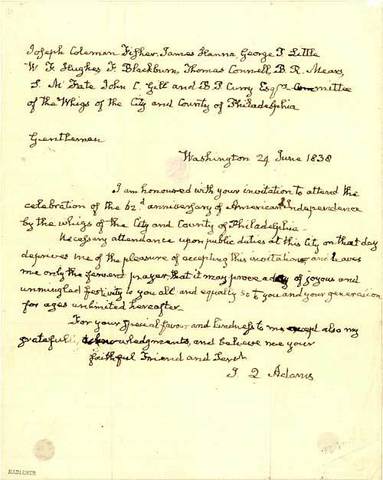 Joseph Coleman Fisher. James Hanna George T Little
W. F. Hughes F. Blackburn, Thomas Connell, B. R. Mears,
S. McFate John C. Gell and B P Curry Esqrs Committee
of the Whigs of the City and County of Philadelphia
Gentlemen
Washington 24 June 1838
I am honoured with your invitation to attend the
celebration of the 62d anniversary of American Independence
by the whigs of the City and County of Philadelphia.
Necessary attendance upon public duties at this City on that day
deprives me of the pleasure of accepting this invitation, and leaves
me only the fervent prayer that it may prove a day of joyous and
unmingled festivity to you all and equally so to you and your generation
for ages unlimited hereafter.
For your special favour and kindness to me accept also my
grateful acknowledgments, and believe me your
faithful Friend and Servt
J Q Adams